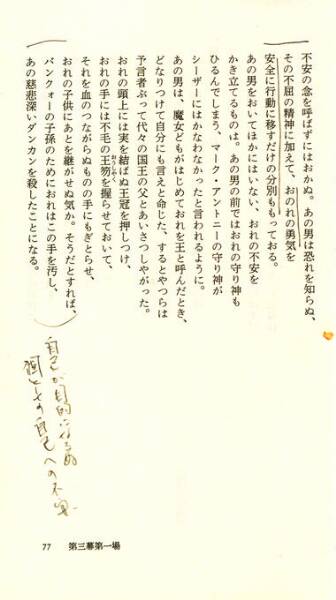 不安の念を呼ばずにはおかぬ。あの男は恐れを知らぬ、
その不屈の精神に加えて、おのれの勇気を
安全に行動に移すだけの分別ももっておる。
あの男をおいてほかにはいない、おれの不安を
かき立てるものは。あの男の前ではおれの守り神も
ひるんでしまう、マーク・アントニーの守り神が
シーザーにはかなわなかったと言われるように。
あの男は、魔女どもがはじめておれを王と呼んだとき、
どなりつけて自分にも言えと命じた、するとやつらは
予言者ぶって代々の国王の父とあいさつしやがった。
おれの頭上には実を結ばぬ王冠を押しつけ、
おれの手には不毛の王笏を握らせておいて、
おうしゃく
それを血のつながらぬものの手にもぎとらせ、
おれの子供にあとを継がせぬ気か。そうだとすれば、
バンクォーの子孫のためにおれはこの手を汚し、
あの慈悲深いダンカンを殺したことになる。
自己が目的になるぬ
自己への不安
77 第三幕第一場